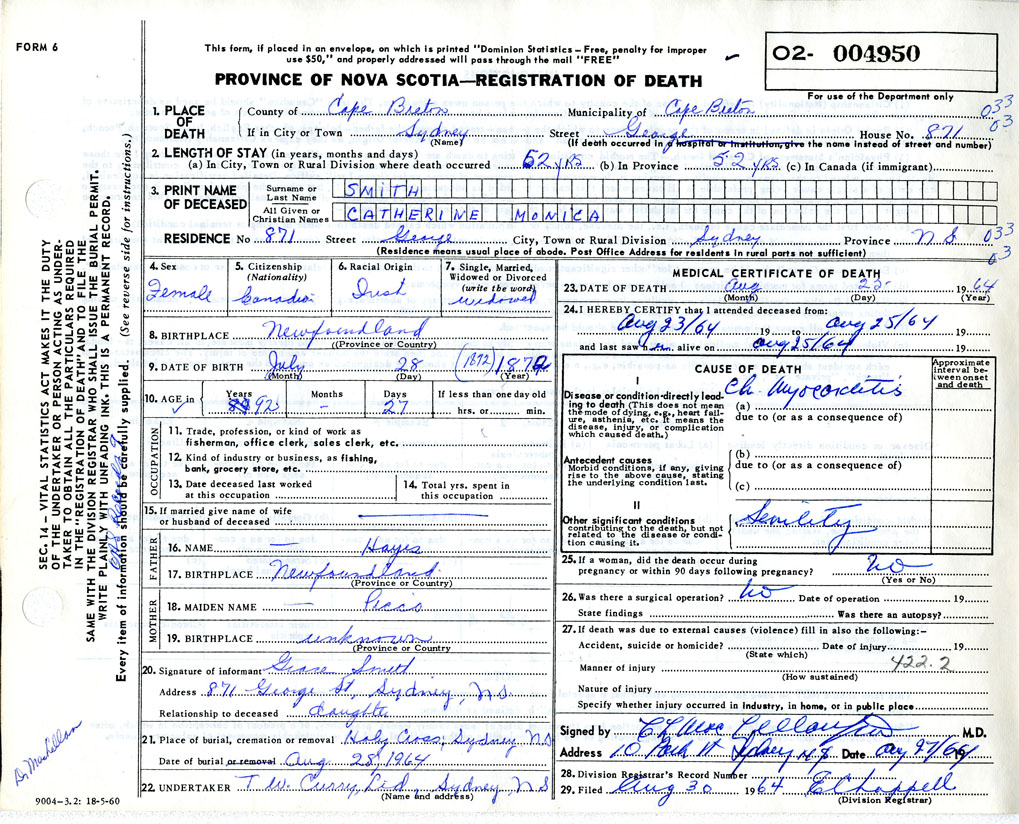 FORM 6
This form, if placed in an envelope, on which is printed "Dominion Statistics – Free, penalty for improper
use $50," and properly addressed will pass through the mail "FREE"
O2- 004950
For use of the Department only
PROVINCE OF NOVA SCOTIA—REGISTRATION OF DEATH
SEC. 14 – VITAL STATISTICS ACT MAKES IT THE DUTY
OF THE UNDERTAKER OR PERSON ACTING AS UNDER-
TAKER TO OBTAIN ALL THE PARTICULARS REQUIRED
IN THE "REGISTRATION OF DEATH" AND TO FILE THE
SAME WITH THE DIVISION REGISTRAR WHO SHALL ISSUE THE BURIAL PERMIT.
WRITE PLAINLY WITH UNFADING INK. THIS IS A PERMANENT RECORD.
Every item of information should be carefully supplied. (See reverse side for instructions.)
1. PLACE OF DEATH County of Cape Breton Municipality of Cape Breton 033
If in City or Town Sydney Street George House No. 871 03
(Name) (If death occurred in a hospital or institution, give the name instead of street and number)
2. LENGTH OF STAY (in years, months and days)
(a) In City, Town or Rural Division where death occurred 52 yrs (b) In Province 52 yrs (c) In Canada (if immigrant)
3. PRINT NAME OF DECEASED Surname or Last Name SMITH
All Given or Christian Names CATHERINE MONICA
RESIDENCE No 871 Street George City, Town or Rural Division Sydney Province N S 033
(Residence means usual place of abode. Post Office Address for residents in rural parts not sufficient) 03
4. Sex Female
5. Citizenship (Nationality) Canadian
6. Racial Origin Irish
7. Single, Married, Widowed or Divorced (write the word) widowed
8. BIRTHPLACE Newfoundland
(Province or Country)
9. DATE OF BIRTH July 28 (1872) 1872
(Month) (Day) (Year)
10. AGE in Years 92 Months - Days 27 If less than one day old hrs. or min.
OCCUPATION
11. Trade, profession, or kind of work as
fisherman, office clerk, sales clerk, etc.
12. Kind of industry or business, as fishing,
bank, grocery store, etc.
13. Date deceased last worked
at this occupation
14. Total yrs. spent in
this occupation
15. If married give name of wife
or husband of deceased
FATHER
16. NAME — Hayes
17. BIRTHPLACE Newfoundland
(Province or Country)
MOTHER
18. MAIDEN NAME — Picco
19. BIRTHPLACE unknown
(Province or Country)
20. Signature of informant Grace Smith
Address 871 George St, Sydney, N.S.
Relationship to deceased daughter
21. Place of burial, cremation or removal Holy Cross, Sydney NS
Date of burial or removal Aug 28, 1964
22. UNDERTAKER T. W. Curry, Ltd, Sydney, N S
(Name and address)
9004–3.2: 18-5-60
MEDICAL CERTIFICATE OF DEATH
23. DATE OF DEATH Aug 25 1964
(Month) (Day) (Year)
24. I HEREBY CERTIFY that I attended deceased from:
Aug 23/64 19 to Aug 25/64 19
and last saw her alive on Aug 25/64 19
CAUSE OF DEATH
Approximate interval between onset and death
I
Disease or condition directly leading to death (This does not mean the mode of dying, e.g., heart failure, asthenia, etc. It means the disease, injury, or complication which caused death.)
(a) Ch. Myocarditis
due to (or as a consequence of)
Antecedent causes
Morbid conditions, if any, giving rise to the above cause, stating the underlying condition last.
(b)
due to (or as a consequence of)
(c)
II
Other significant conditions contributing to the death, but not related to the disease or condition causing it.
Senility
25. If a woman, did the death occur during
pregnancy or within 90 days following pregnancy? No
(Yes or No)
26. Was there a surgical operation? No Date of operation 19
State findings Was there an autopsy?
27. If death was due to external causes (violence) fill in also the following:–
Accident, suicide or homicide? Date of injury 19
(State which) 422.2
Manner of injury
(How sustained)
Nature of injury
Specify whether injury occurred in Industry, in home, or in public place
Signed by M.D.
Address 10 Park St Sydney N.S. Date Aug 27/64
28. Division Registrar's Record Number
29. Filed Aug 30 1964 E Chappell
(Division Registrar)